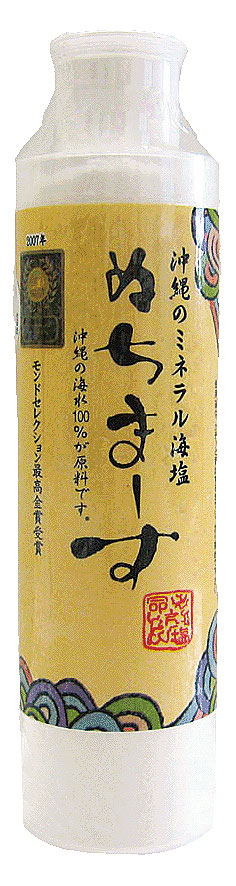 沖縄のミネラル海塩
ぬちまーす
沖縄の海水100%が原料です。
2007年
モンドセレクション最高金賞受賞